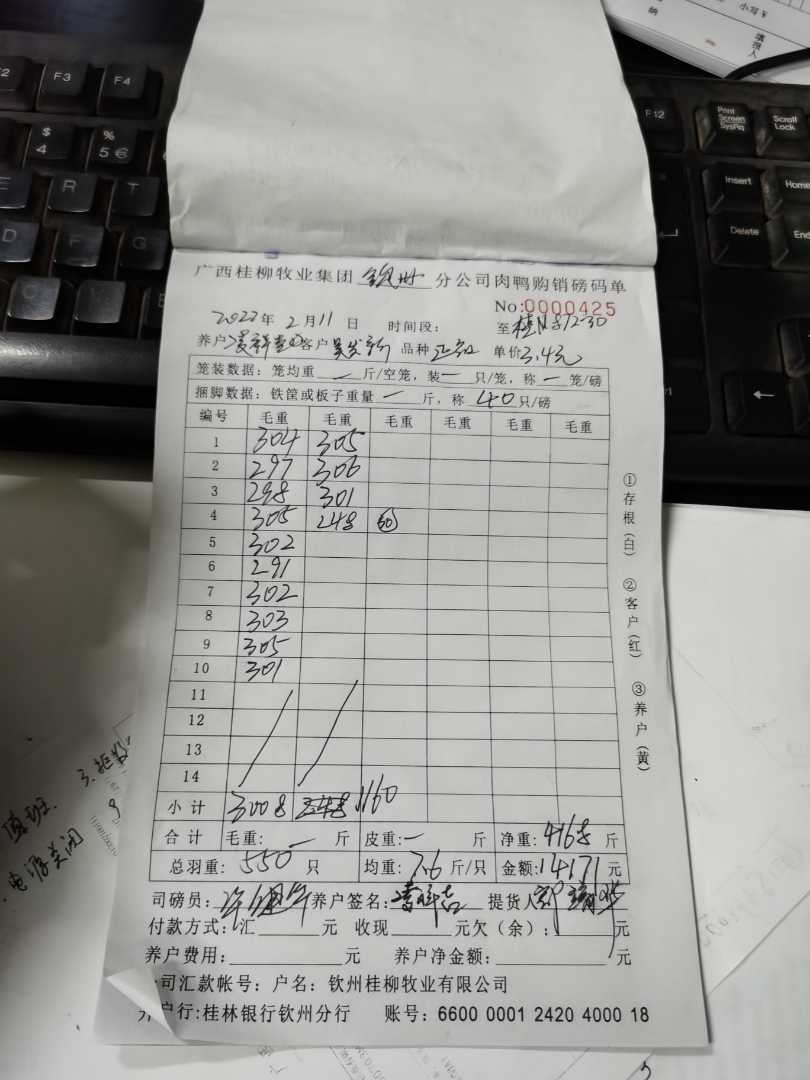 小写¥
纳
填报人
F2 F3 F4
$ 4 % 5 €
E R T
D F G
F12 Print Screen SysRq Scroll Lock
Insert Home
Delete End
广西桂柳牧业集团 钦州 分公司肉鸭购销磅码单
No:0000425
2022年 2月11日 时间段: 至
养户: 客户 吴发新 品种 单价 3.4元
笼装数据: 笼均重 — 斤/空笼, 装 — 只/笼, 称 — 笼/磅
捆脚数据: 铁筐或板子重量 — 斤, 称 40 只/磅
编号 毛重 毛重 毛重 毛重 毛重 毛重
1 304 305
2 297 306
3 298 301
4 305 248 30
5 302
6 291
7 302
8 303
9 305
10 301
11
12
13
14
小计 3008 1160
合计 毛重: — 斤 皮重: — 斤 净重: 4168 斤
总羽重: 550 只 均重: 7.6 斤/只 金额: 14171 元
司磅员: 养户签名: 提货人
付款方式: 汇 元 收现 元欠(余): 元
养户费用: 元 养户净金额: 元
司汇款帐号: 户名: 钦州桂柳牧业有限公司
户行:桂林银行钦州分行 账号: 6600 0001 2420 4000 18
①存根(白) ②客户(红) ③养户(黄)
值班.
电源关闭